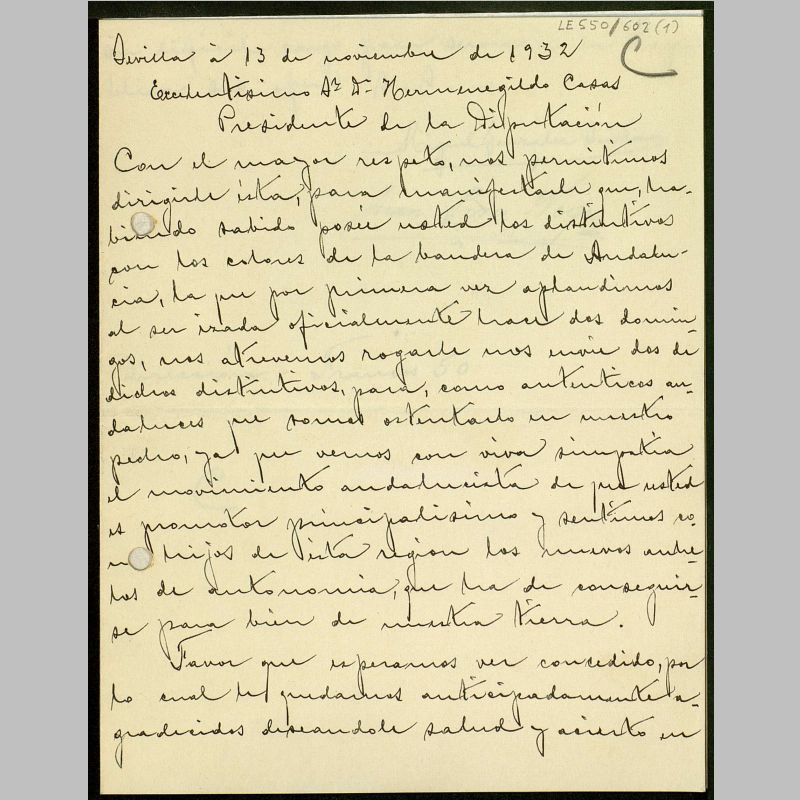 LE 550/602 (1)
C
Sevilla à 13 de noviembre de 1932
Excelentisimo Sr. Dn. Hermenegildo Casas
Presidente de la Diputación
Con el mayor respeto, nos permitimos
dirigirle ésta, para manifestarle que, ha-
biendo sabido posée usted los distintivos
con los colores de la bandera de Andalu-
cia, la que por primera vez aplaudimos
al ser izada oficialmente hace dos domin-
gos, nos atrevemos rogarle nos envie dos de
dichos distintivos, para, como autenticos an-
daluces que somos ostentarlo en nuestro
pecho, ya que vemos con viva simpatia
el movimiento andalucista de que usted
es promotor principalisimo y sentimos co-
mo hijos de ésta region los nuevos anhe-
los de autonomia, que ha de conseguir-
se para bién de nuestra tierra.
Favor que esperamos ver concedido, por
lo cual le quedamos anticipadamente a-
gradecidos deseandole salud y acierto en